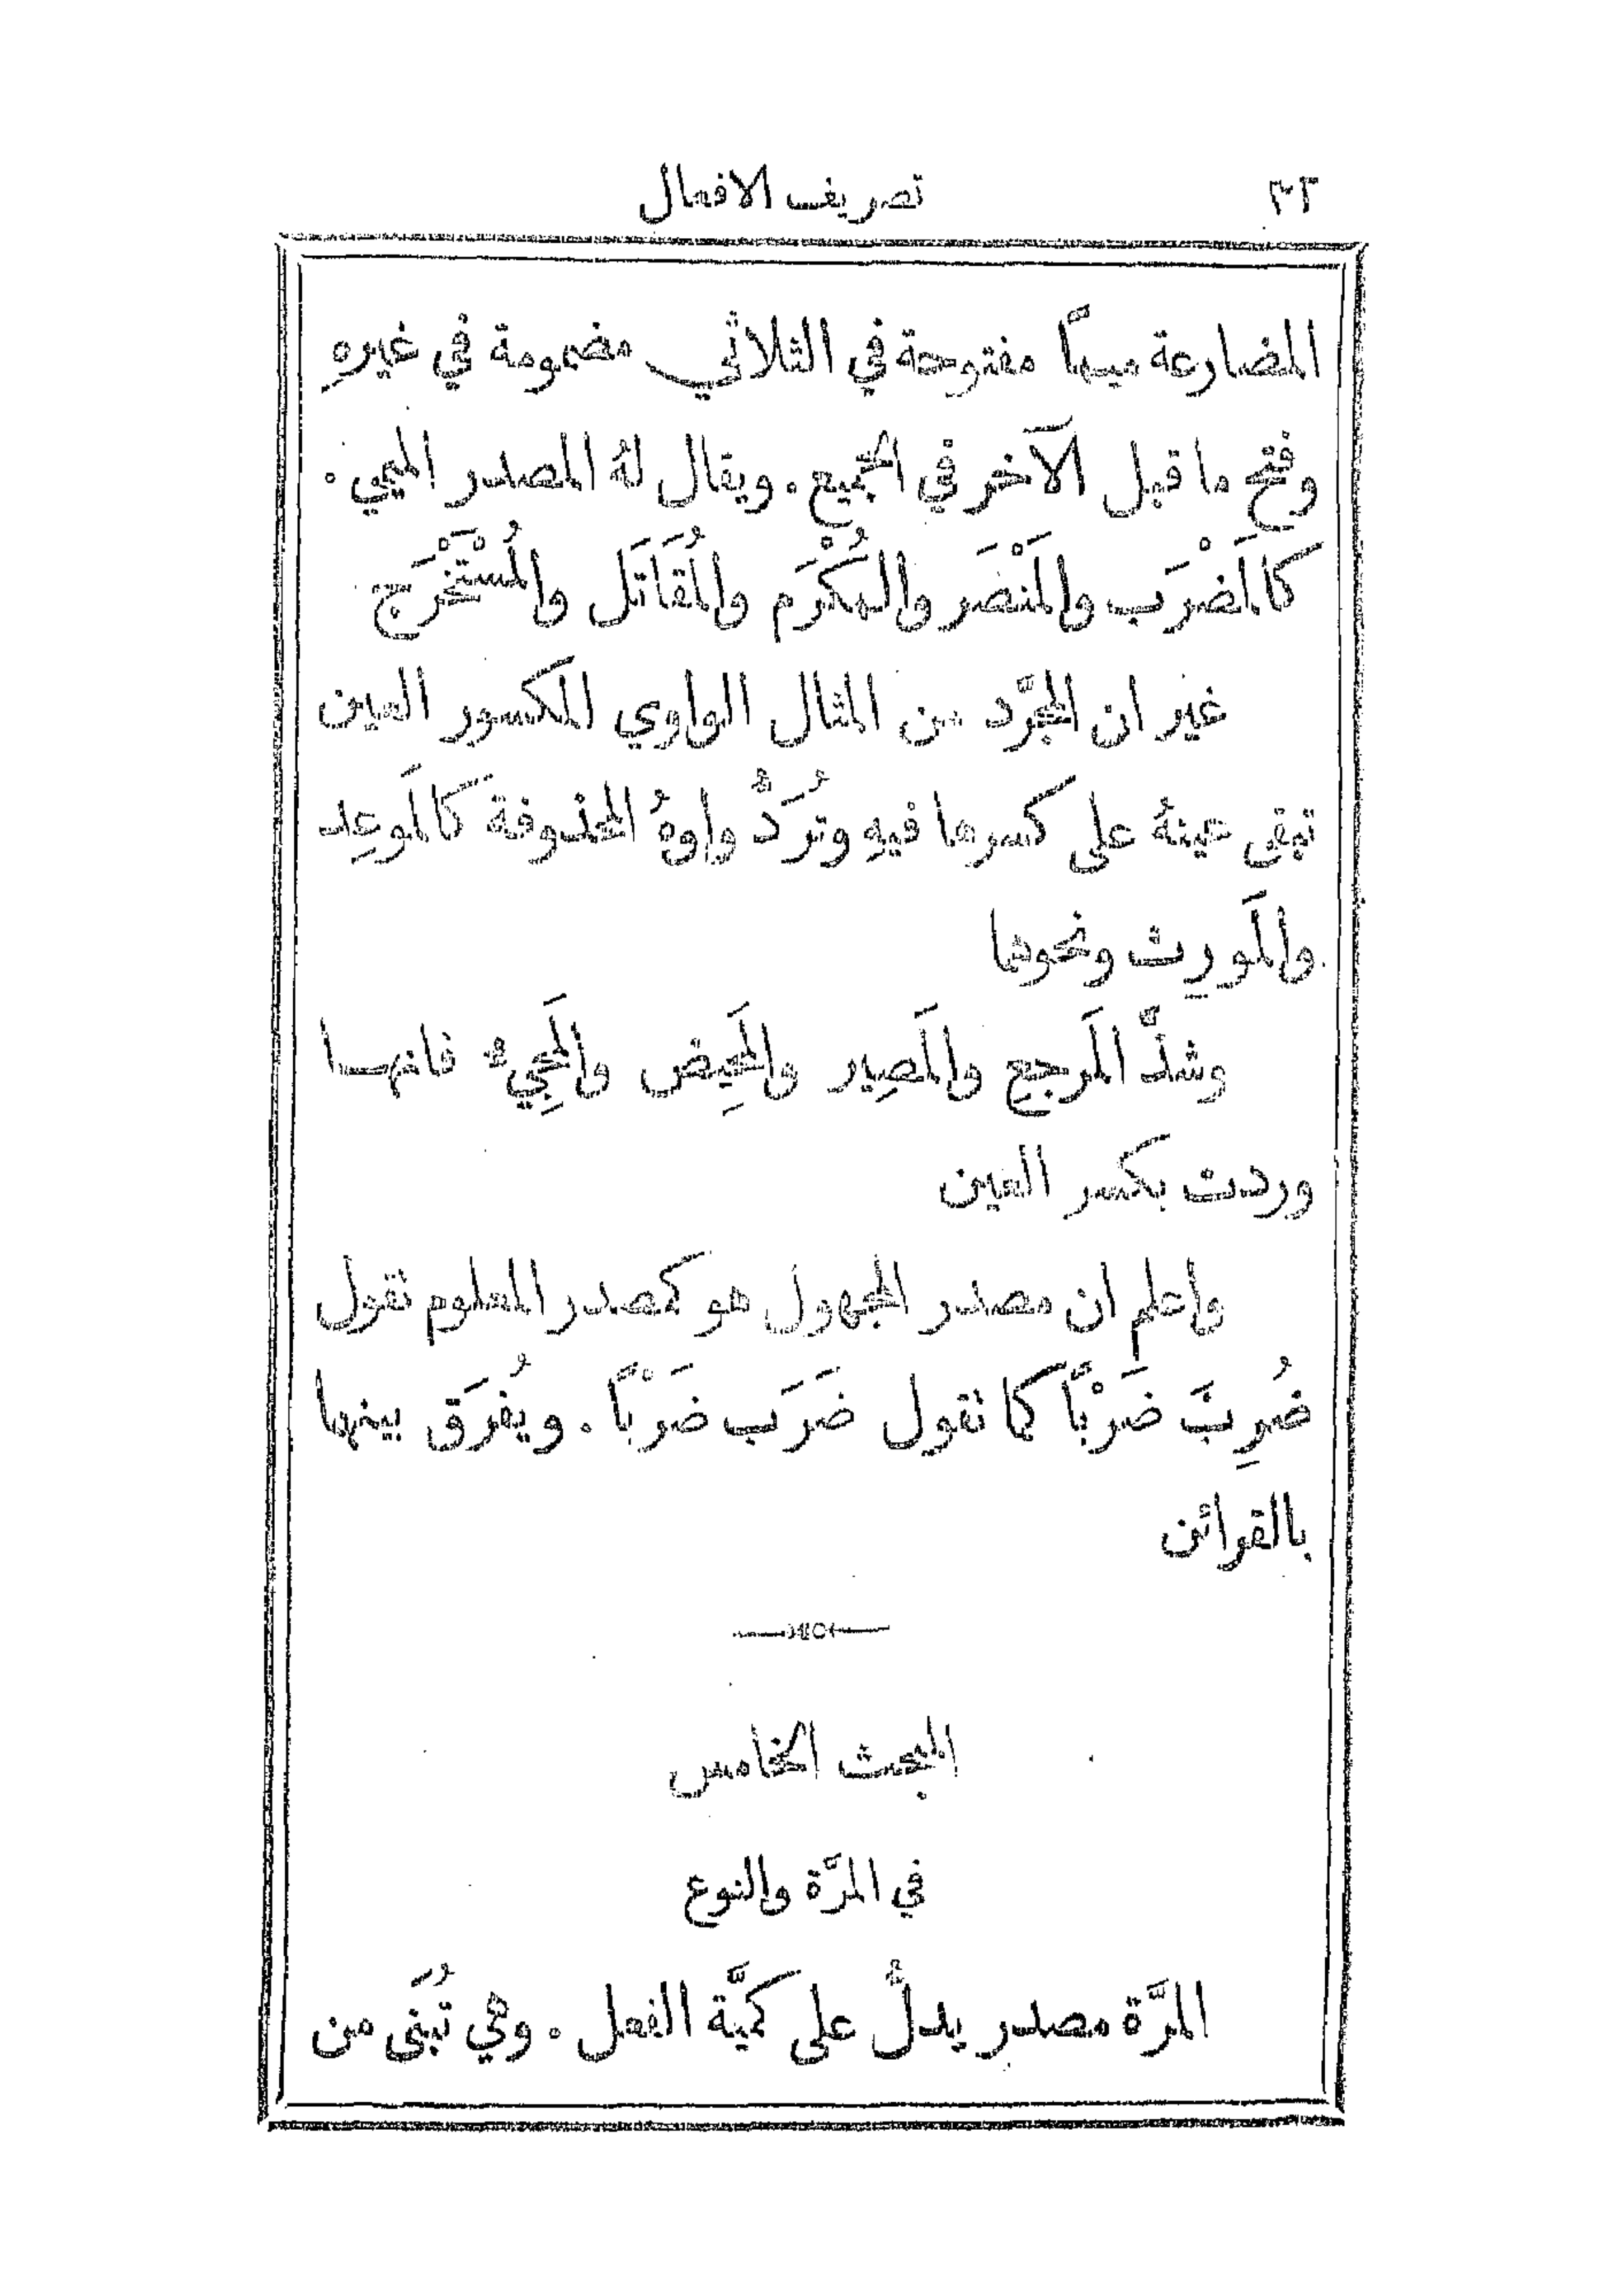 ٣٢ تصريف الافعال
المضارعة ميمًا مفتوحة في الثلاثي مضمومة في غيرهِ
وفتح ما قبل الآخر في الجميع . ويقال لهُ المصدر الميمي .
كالمَضْرَب والمَنْصَر والمُكْرَم والمُقَاتَل والمُسْتَخْرَج
غير ان المجرَّد من المثال الواوي المكسور العين
تبقى عينهُ على كسرها فيهِ وتُرَدُّ واوهُ المحذوفة كالمَوعِد
والمَورِث ونحوها
وشذَّ المَرجِع والمَصِير والمَحِيض والمَجِيءُ فانها
وردت بكسر العين
واعلم ان مصدر المجهول هو كمصدر المعلوم تقول
ضُرِبَ ضَرْبًا كما تقول ضَرَب ضَرْبًا . ويُفرَق بينهما
بالقرائن
المبحث الخامس
في المرَّة والنوع
المرَّة مصدر يدلُّ على كميَّة الفعل . وهي تُبَنى من